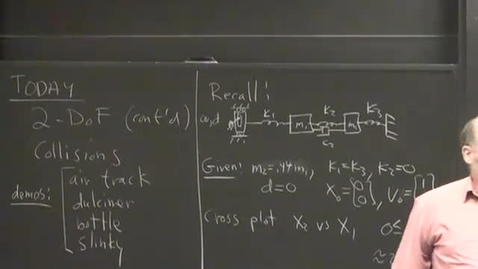 TODAY
2-DoF (cont'd)
Collisions
demos:
air track
dulcimer
bottle
slinky
Recall:
K₁
m₁
K₂
m
K₃
Given: m₂=.4m₁, K₁=K₃, K₂=0
d=0 X₀={0 0}, V₀={1
Cross plot X₂ vs X₁ 0≤